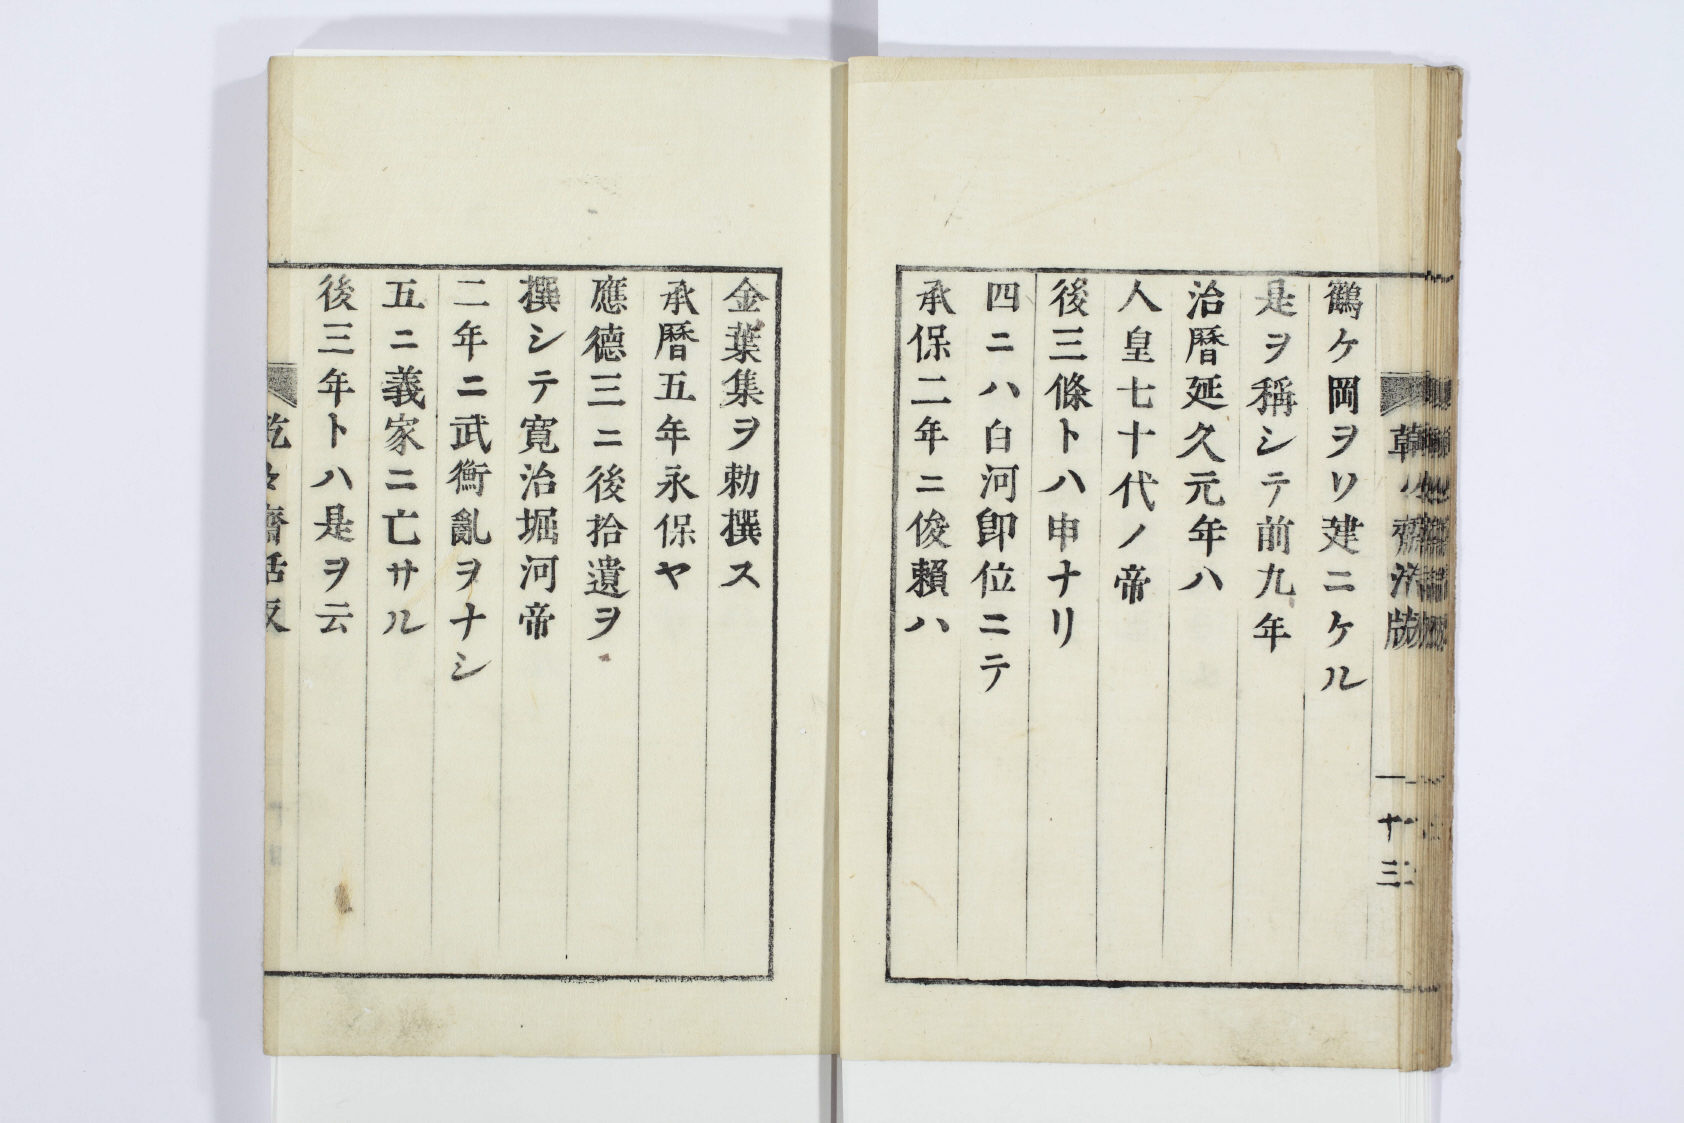 鶴ケ岡ヲソ建ニケル
是ヲ稱シテ前九年
治暦延久元年ハ
人皇七十代ノ帝
後三條トハ申ナリ
四ニハ白河卽位ニテ
承保二年ニ俊賴ハ
十三
金葉集ヲ勅撰ス
承暦五年永保ヤ
應德三ニ後拾遺ヲ
撰シテ寛治堀河帝
二年ニ武衡亂ヲナシ
五ニ義家ニ亡サル
後三年トハ是ヲ云